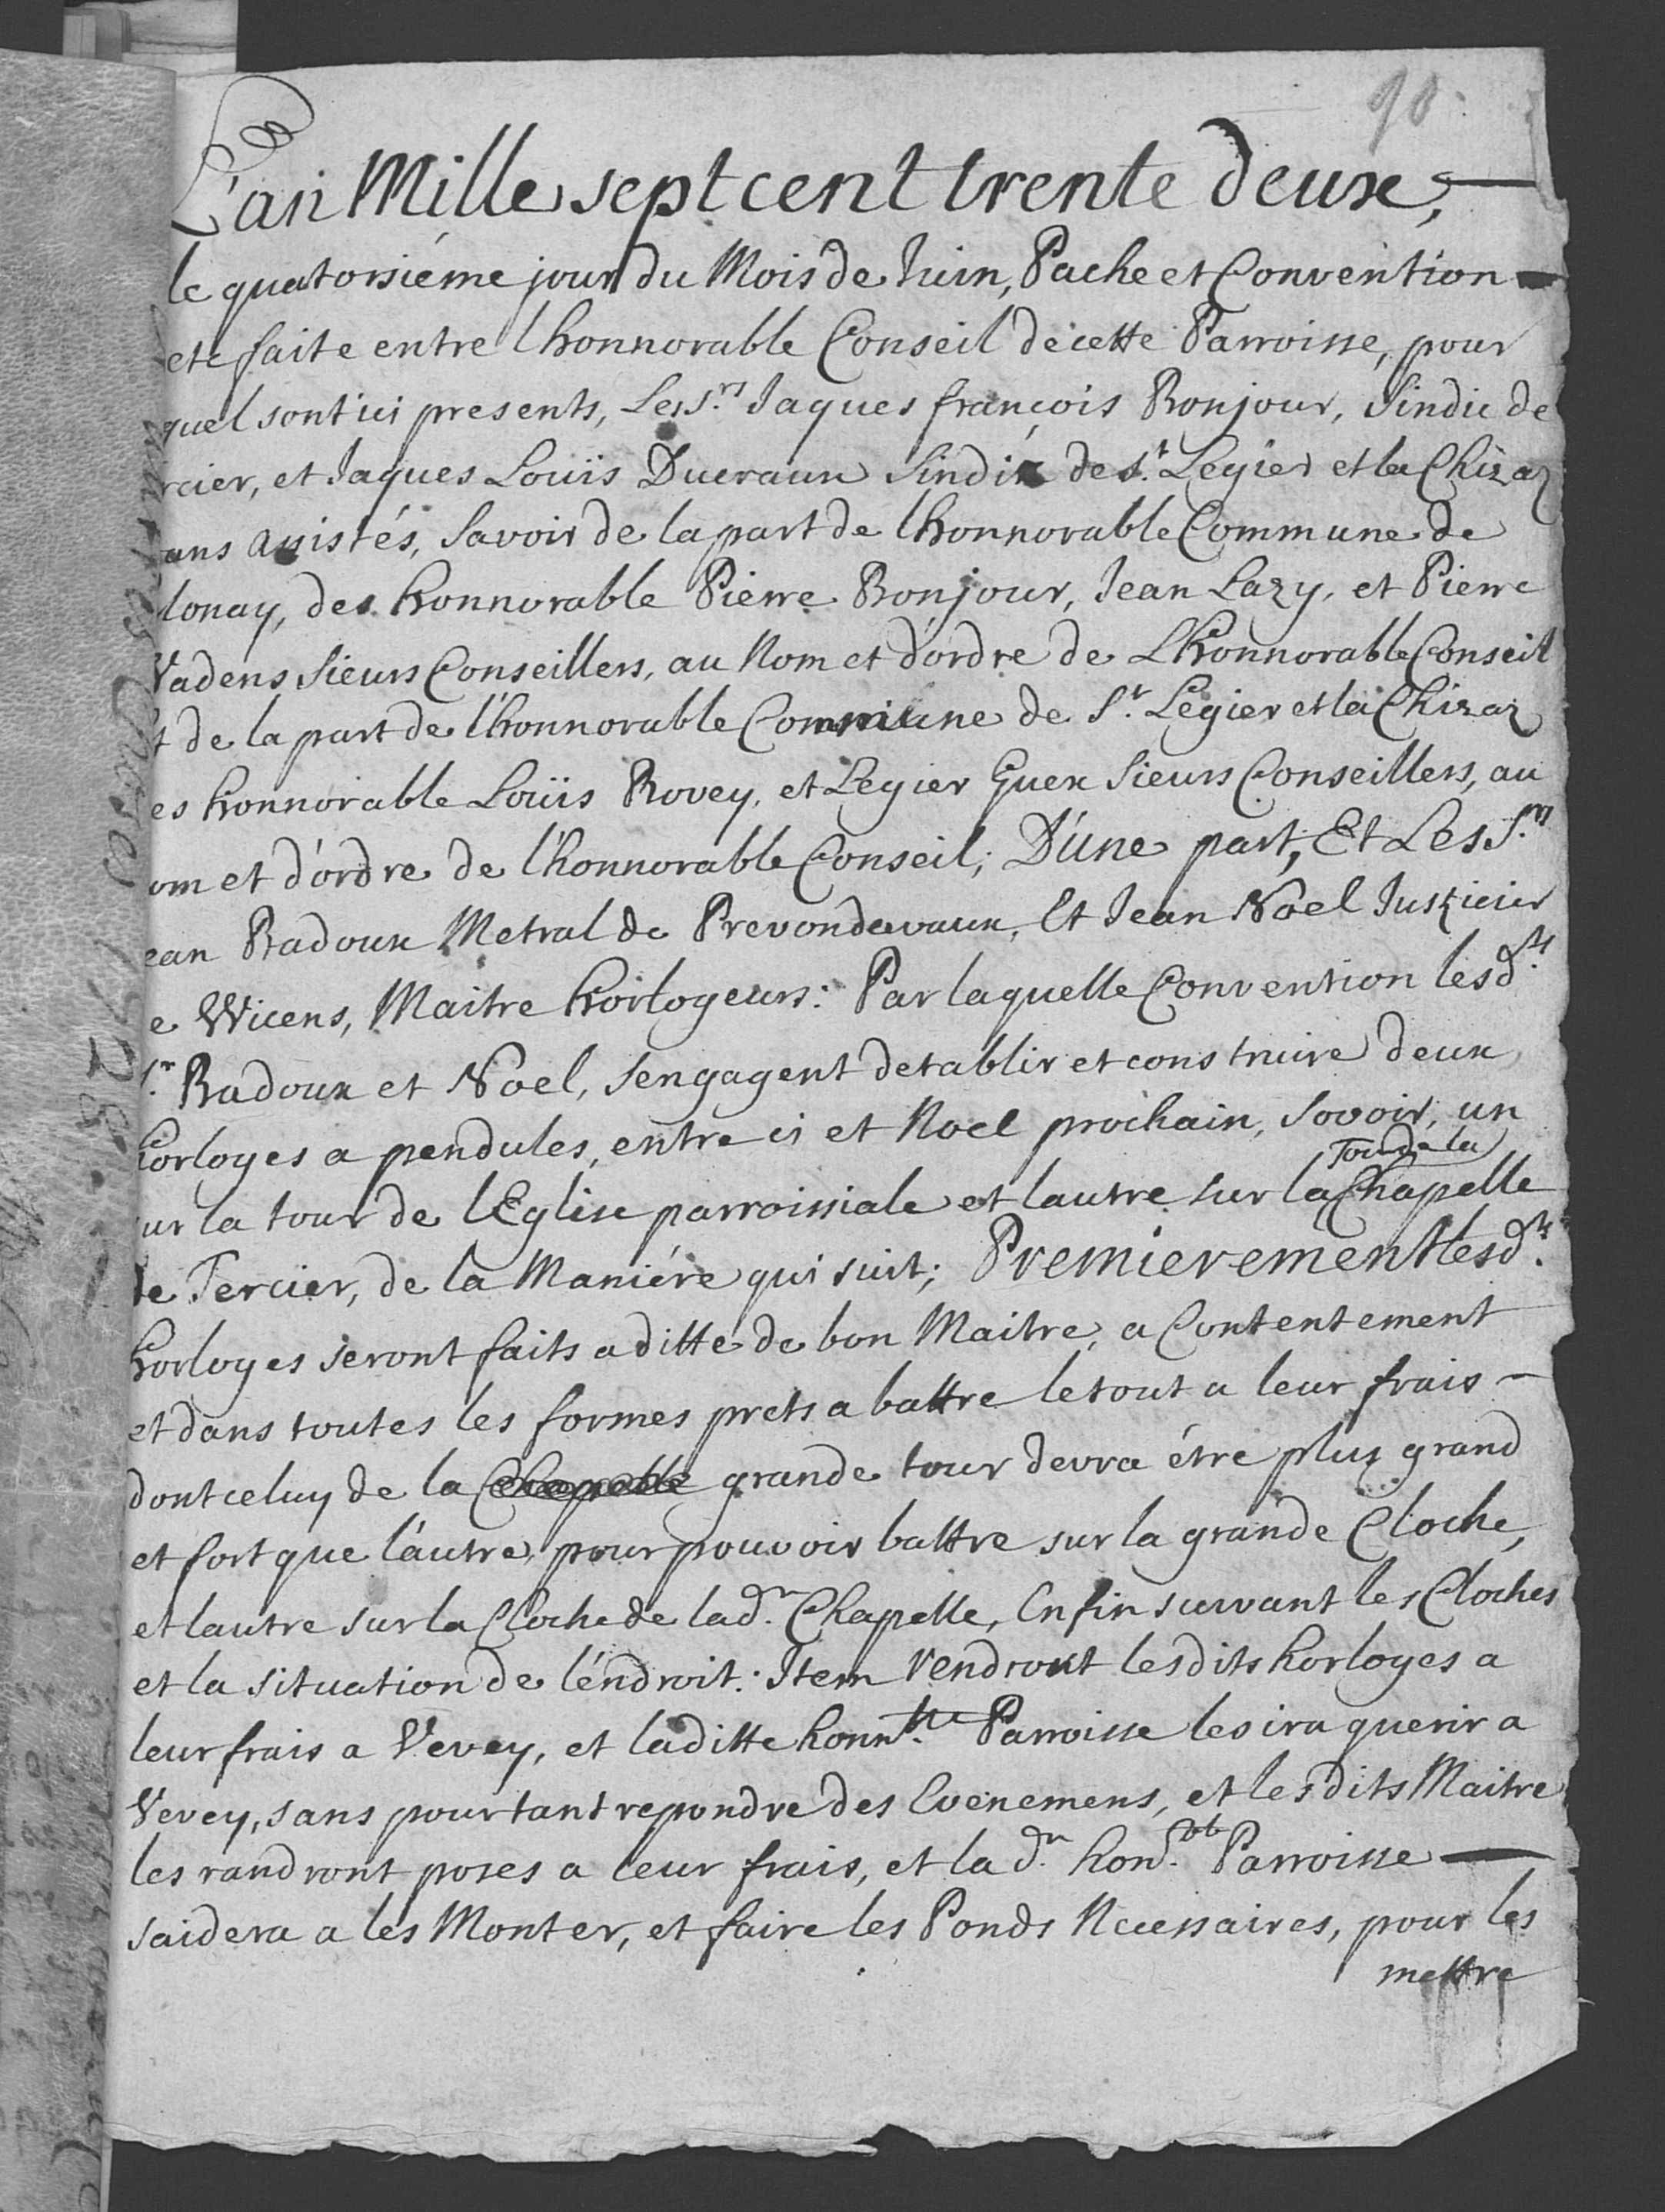 90
L'an Mille sept cent trente deux,
le quatorsiéme jour du Mois de Juin, Pache et Convention
eté faite entre lhonnorable Conseil de cette Parroisse, pour
quel sont ici presents, Les S.rs Jaques françois Bonjour, Sindic de
rcier, et Jaques Louïs Ducraux Sindix de S.t Legier et la Chizaz
ans assistés, Savoir de la part de lhonnorable Commune de
lonay, des honnorable Pierre Bonjour, Jean Lazy, et Pierre
Vadens Sieurs Conseillers, au Nom et d'ordre de Lhonnorable Conseil
t de la part de l'honnorable Commune de S.t Légier et la Chizaz
es honnorable Louïs Rovey, et Legier Guex Sieurs Conseillers, au
om et d'ordre de l'honnorable Conseil; D'une part, Et Les S.rs
ean Badoux Metral de Prevondavaux, Et Jean Noel Justicier
e Wicens, Maitre horlogeurs: Par laquelle Convention lesd.ts
S.r Badoux et Noel, sengagent detablir et construire deux
horloges a pendules, entre ci et Noel prochain, sovoir, un
ur la tour de lEglise parroissiale et lautre sur la Tour de la Chapelle
de Tercier, de la Maniére qui suit; Premierement lesd.ts
horloges seront faits a ditte de bon Maitre, a Contentement
et dans toutes les formes prets a battre le tout a leur frais
dont celuy de la Chapelle grande tour devra étre plus grand
et fort que l'autre, pour pouvoir battre sur la grande Cloche,
et lautre sur la Cloche de lad.e Chapelle, Enfin suivant les Cloches
et la situation de l'éndroit. Item Rendront lesdits horloges a
leur frais a Vevey, et laditte honn.ble Parroisse les ira querir a
Vevey, sans pourtant repondre des Evenemens, et lesdits Maitre
les randront poses a leur frais, et la d.e hon.ble Parroisse
saidera a les Monter, et faire les Ponds Necessaires, pour les
mettre